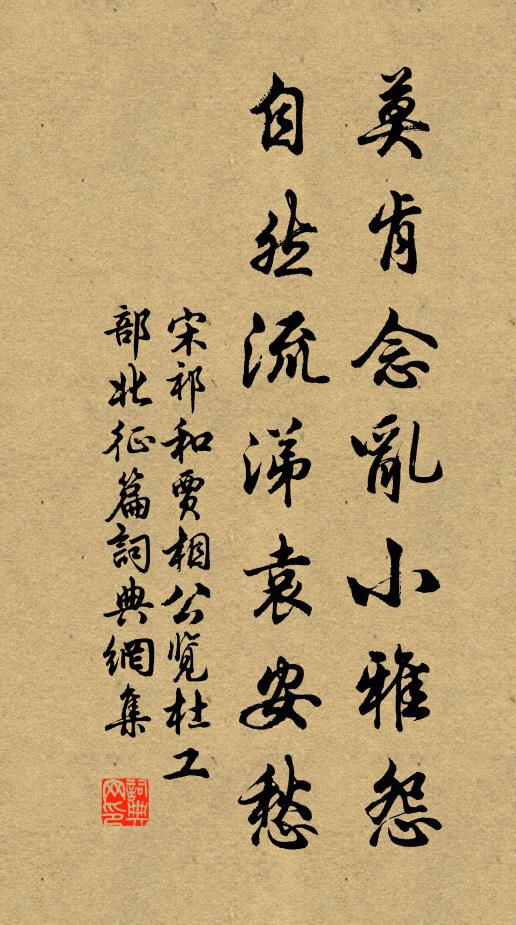 莫肯念亂小雅怨
自然流涕袁安愁
宋祁和賈相公覽杜工
部北征篇詞典網集
詞典
网印